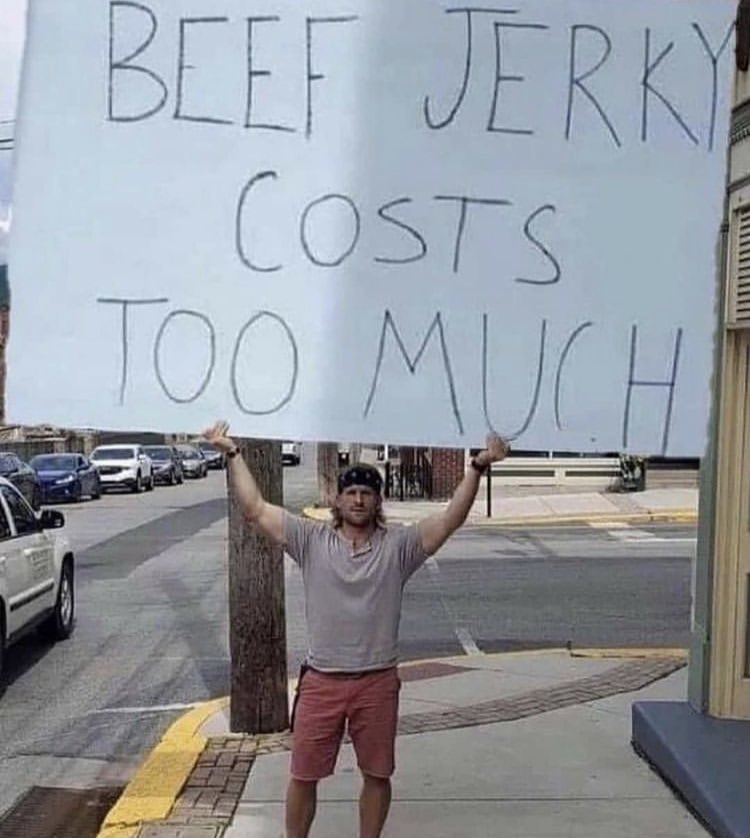 BEEF JERKY
COSTS
TOO MUCH